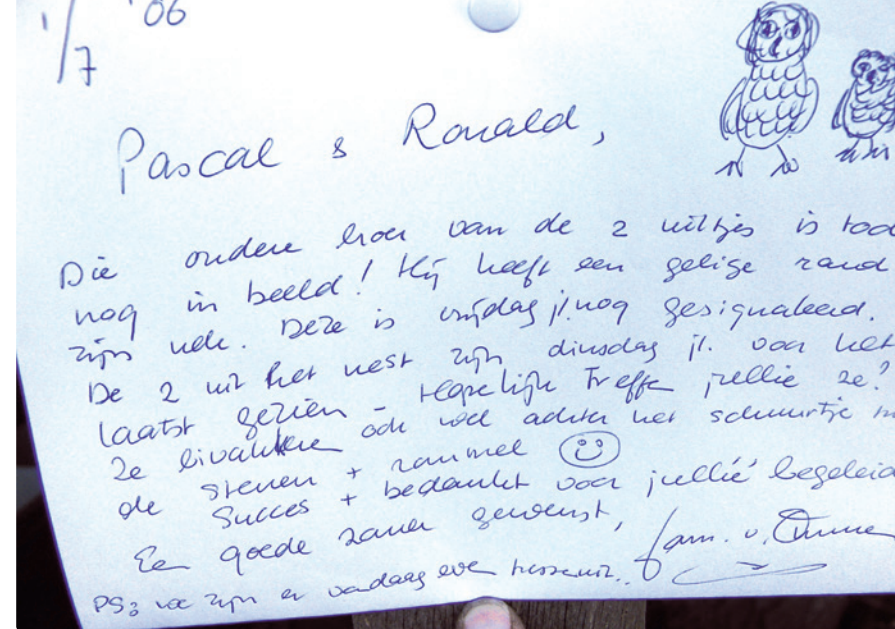 1/7 '06
Pascal & Ronald,
Die oudere broer van de 2 uiltjes is
nog in beeld! Hij heeft een gelige rand
zijn nek. Deze is vrijdag jl. nog gesignaleerd.
De 2 uit het nest zijn dinsdag jl. voor het
laatst gezien - Hopelijk treffen jullie ze?
Ze bivakkeren ook wel achter het schuurtje
de stenen + rommel
Succes + bedankt voor jullie
Een goede zomer gewenst,
fam. v.
PS: we zijn er vandaag even tussenuit.